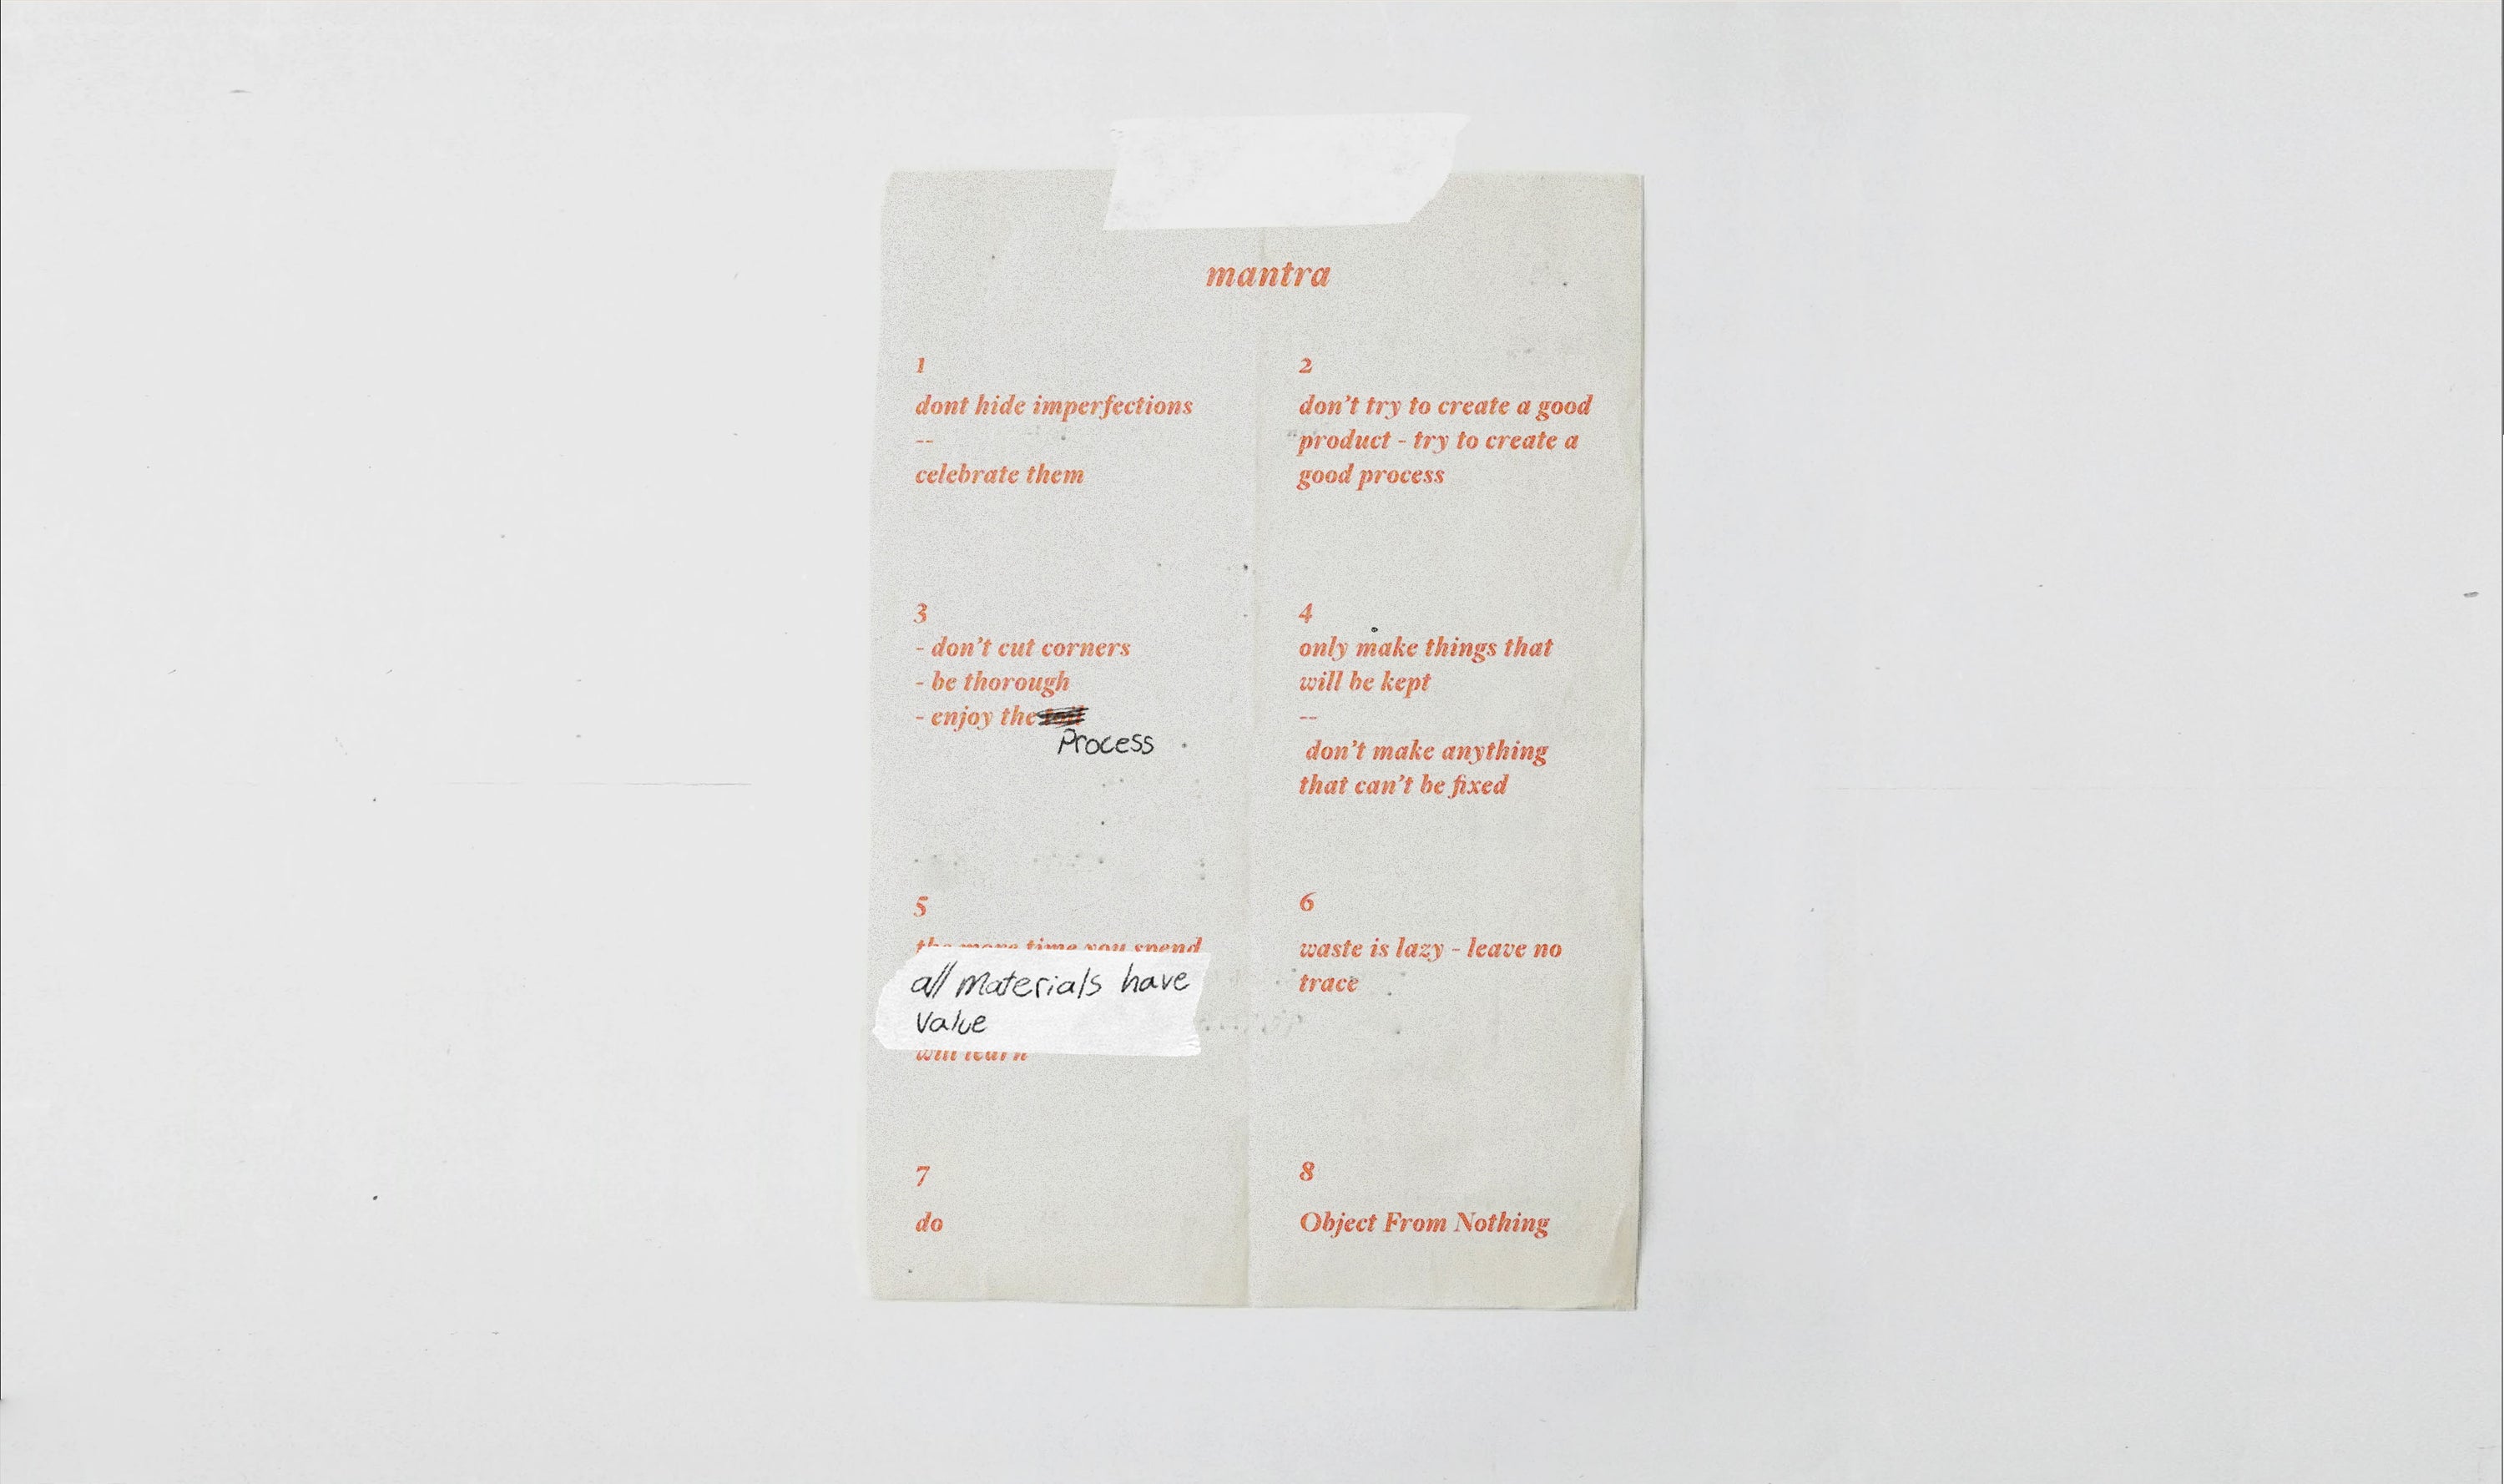 mantra
1
dont hide imperfections
--
celebrate them
2
don't try to create a good
product - try to create a
good process
3
- don't cut corners
- be thorough
- enjoy the
Process
4
only make things that
will be kept
--
don't make anything
that can't be fixed
5
the more time you spend
all materials have
value
will learn
6
waste is lazy - leave no
trace
7
do
8
Object From Nothing